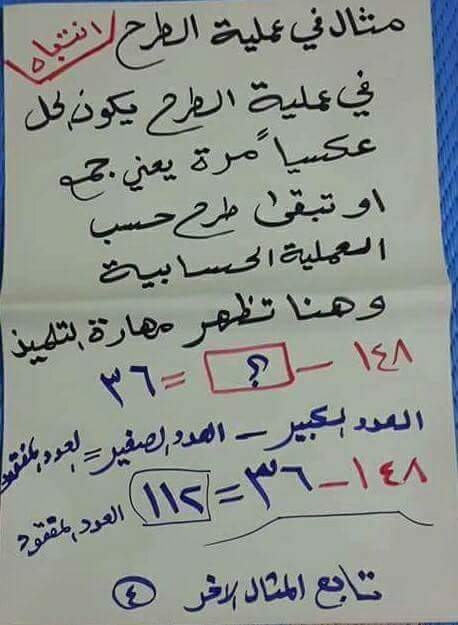 مثال في عملية الطرح انتباه
في عملية الطرح يكون الحل
عكسياً مرة يعني جمع
او تبقى طرح حسب
العملية الحسابية
وهنا تظهر مهارة التلميذ
١٤٨ - ؟ = ٣٦
العدد الكبير - العدد الصغير = العدد المفقود
١٤٨ - ٣٦ = ١١٢ العدد المفقود
تابع المثال الاخر ٤